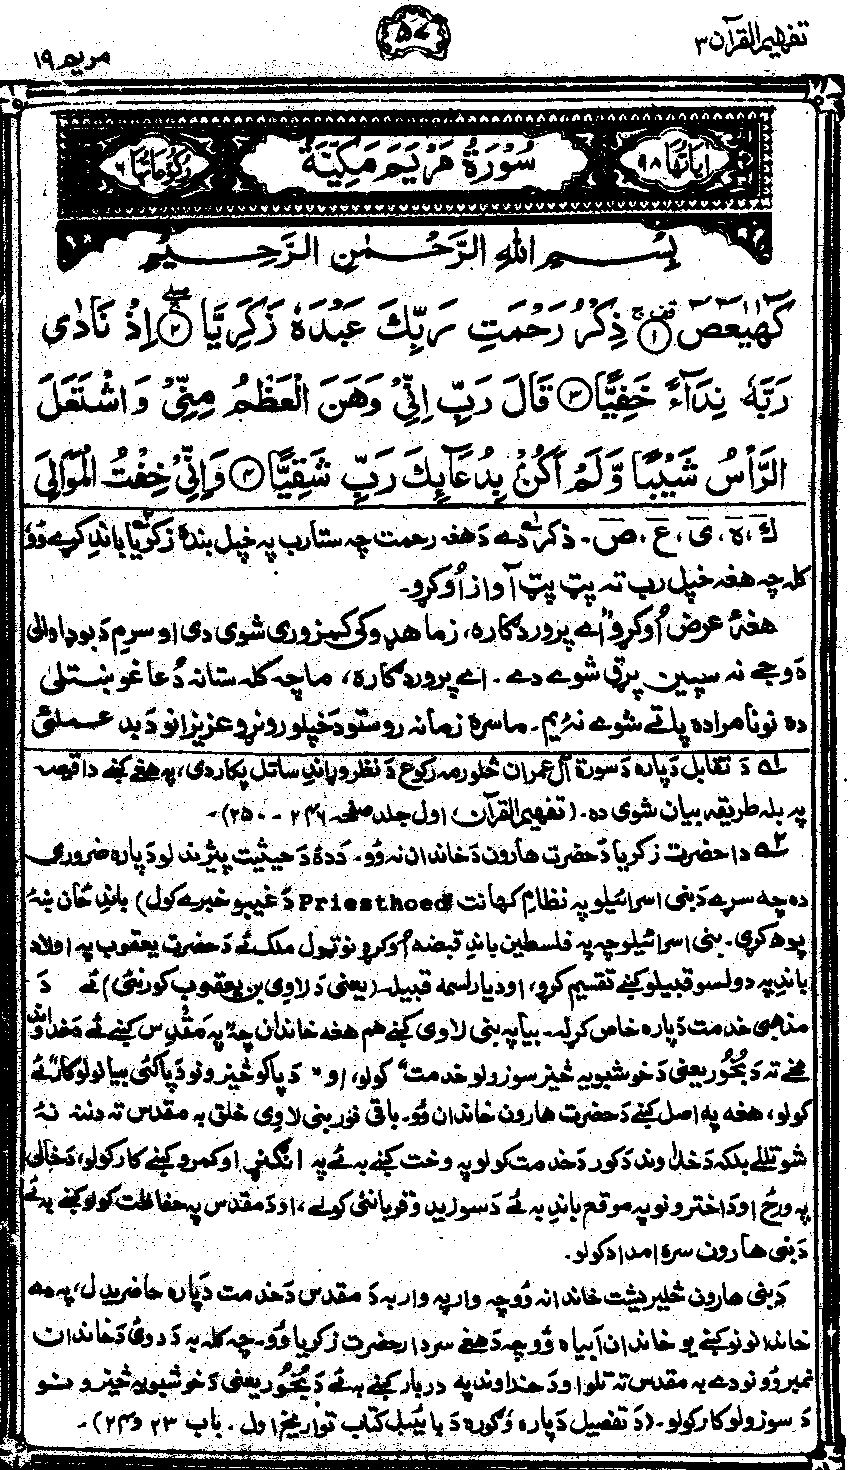 تفهیم القرآن ۳
۵۷
مریم ۱۹
اٰیَاتُهَا ۹۸
سُوْرَةُ مَرْيَمَ مَكِّيَّةٌ
رُكُوْعَاتُهَا ۶
بِسْمِ اللهِ الرَّحْمٰنِ الرَّحِيْمِ
كٓهٰيٰعٓصٓ ۱ ذِكْرُ رَحْمَتِ رَبِّكَ عَبْدَهٗ زَكَرِيَّا ۲ اِذْ نَادٰى
رَبَّهٗ نِدَآءً خَفِيًّا ۳ قَالَ رَبِّ اِنِّيْ وَهَنَ الْعَظْمُ مِنِّيْ وَاشْتَعَلَ
الرَّاْسُ شَيْبًا وَّلَمْ اَكُنْۢ بِدُعَآئِكَ رَبِّ شَقِيًّا ۴ وَاِنِّيْ خِفْتُ الْمَوَالِيَ
ک، ہ، ی، ع، ص۔ ذکر دے دَهغه رحمت چه ستا رب په خپل بنده زکریا باندِ کړے وُو
کله چه هغه خپل رب ته پټ پټ آواز اُوکړو۔
هغهٔ عرض اُوکړو اے پروردګاره، زما هډوکی کمزوری شوی دی او سرم دَ بوډاوالی
دَوجے نه سپین پړق شوے دے۔ اے پروردګاره، ما چه کله ستا نه دُعا غوښتلی
ده نو نامراده پاتے شوے نه یم۔ ما سره زما نه روستو دَ خپلو رونړو عزیزانو دَ بد عملئ
۱ دَ تقابل دَپاره دَ سورة آل عمران څلورمه رکوع دَ نظر وړاندِ ساتل پکار دی، په هغے کښے دا قصه
په بله طریقه بیان شوی ده۔ (تفهیم القرآن، اول جلد صفحه ۲۴۶ - ۲۵۰)۔
۲ دا حضرت زکریا دَ حضرت هارون دَ خاندان نه وُو۔ دَدهٔ دَ حیثیت پیژندلو دَپاره ضروری
ده چه سړے دَ بنی اسرائیلو په نظامِ کهانت Priesthoed دَ غیبو خبرے کول) باندِ ځان ښهٔ
پوهه کړی۔ بنی اسرائیلو چه په فلسطین باندِ قبضه اُوکړو نو ټول ملک ئے دَ حضرت یعقوب په اولاد
باندِ په دولسو قبیلو کښے تقسیم کړو، او دیارلسمه قبیله (یعنی دَ لاوِی بن یعقوب کورنئی) ئے دَ
مذهبی خدمت دَپاره خاص کړله۔ بیا په بنی لاوی کښے هم هغه خاندان چه په مَقْدِس کښے ئے دَخداوند
مخے ته دَ بُخُور یعنی دَ خوشبویه څیز سوزولو خدمت" کولو، او "دَ پاکو څیزونو دَ پاکئی بیانولو کار" ئے
کولو، هغه په اصل کښے دَ حضرت هارون خاندان وُو۔ باقی نور بنی لاوِی خلق به مقدس ته دننه نهٔ
شو تللے بلکه دَ خداوند دَ کور دَ خدمت کولو په وخت کښے به ئے په انګنړ او کمرو کښے کار کولو، دَ خالی
په ورځ او دَ اخترونو په موقع باندِ به ئے دَ سوزیدو قربانئی کولے، او دَ مقدس په حفاظت کولو کښے به ئے
دَ بنی هارون سره امداد کولو۔
دَ بنی هارون څلیریشت خاندانه وُو چه وار په وار به دَ مقدس دَ خدمت دَپاره حاضریدل، په دے
خاندانونو کښے یو خاندان اَبیاه وُو چه دَ هغے سردار حضرت زکریا وُو۔ چه کله به دَ دوی دَ خاندان
نمبر وُو نو دے به مقدس ته تلو او دَ خداوند په دربار کښے به ئے دَ بُخُور یعنی دَ خوشبویه څیزونو
دَ سوزولو کار کولو۔ (دَ تفصیل دَپاره وُګوره دَ بائیبل کتاب تواریخ اول۔ باب ۲۳ و ۲۴)۔